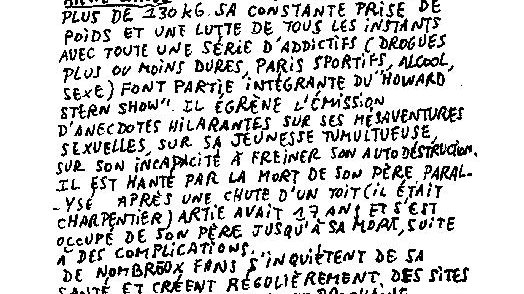 PLUS DE 130 KG. SA CONSTANTE PRISE DE
POIDS ET UNE LUTTE DE TOUS LES INSTANTS
AVEC TOUTE UNE SÉRIE D'ADDICTIFS (DROGUES
PLUS OU MOINS DURES, PARIS SPORTIFS, ALCOOL,
SEXE) FONT PARTIE INTÉGRANTE DU "HOWARD
STERN SHOW". IL ÉGRÈNE L'ÉMISSION
D'ANECDOTES HILARANTES SUR SES MÉSAVENTURES
SEXUELLES, SUR SA JEUNESSE TUMULTUEUSE,
SUR SON INCAPACITÉ À FREINER SON AUTODESTRUCION.
IL EST HANTÉ PAR LA MORT DE SON PÈRE PARAL-
-YSÉ APRÈS UNE CHUTE D'UN TOIT (IL ÉTAIT
CHARPENTIER) ARTIE AVAIT 17 ANS ET S'EST
OCCUPÉ DE SON PÈRE JUSQU'À SA MORT, SUITE
À DES COMPLICATIONS.
DE NOMBREUX FANS S'INQUIÈTENT DE SA
SANTÉ ET CRÉENT RÉGULIÈREMENT DES SITES